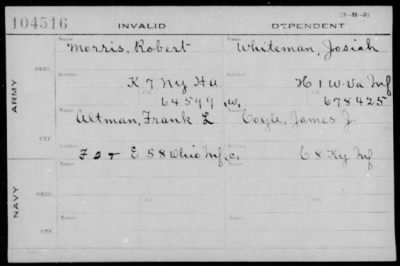 104516 INVALID DEPENDENT (3-H-8)
Name Name
Morris, Robert Whiteman, Josiah
ORIG. Service Service
K 7 Ny HA H 1 W.Va Inf
ARMY Ctf. Ctf.
64599 W. 678425
Name Name
Altman, Frank L Coyle, James J.
CTF. Service Service
F & I E 58 Ohio Inf C. C 8 Ky Inf
NAVY
ORIG. Name Name
CTF. Name Name